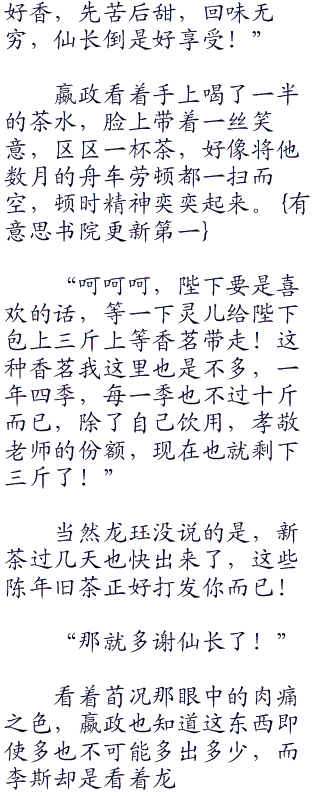 好香，先苦后甜，回味无
穷，仙长倒是好享受！”
嬴政看着手上喝了一半
的茶水，脸上带着一丝笑
意，区区一杯茶，好像将他
数月的舟车劳顿都一扫而
空，顿时精神奕奕起来。{有
意思书院更新第一}
“呵呵呵，陛下要是喜
欢的话，等一下灵儿给陛下
包上三斤上等香茗带走！这
种香茗我这里也是不多，一
年四季，每一季也不过十斤
而已，除了自己饮用，孝敬
老师的份额，现在也就剩下
三斤了！”
当然龙珏没说的是，新
茶过几天也快出来了，这些
陈年旧茶正好打发你而已！
“那就多谢仙长了！”
看着荀况那眼中的肉痛
之色，嬴政也知道这东西即
使多也不可能多出多少，而
李斯却是看着龙